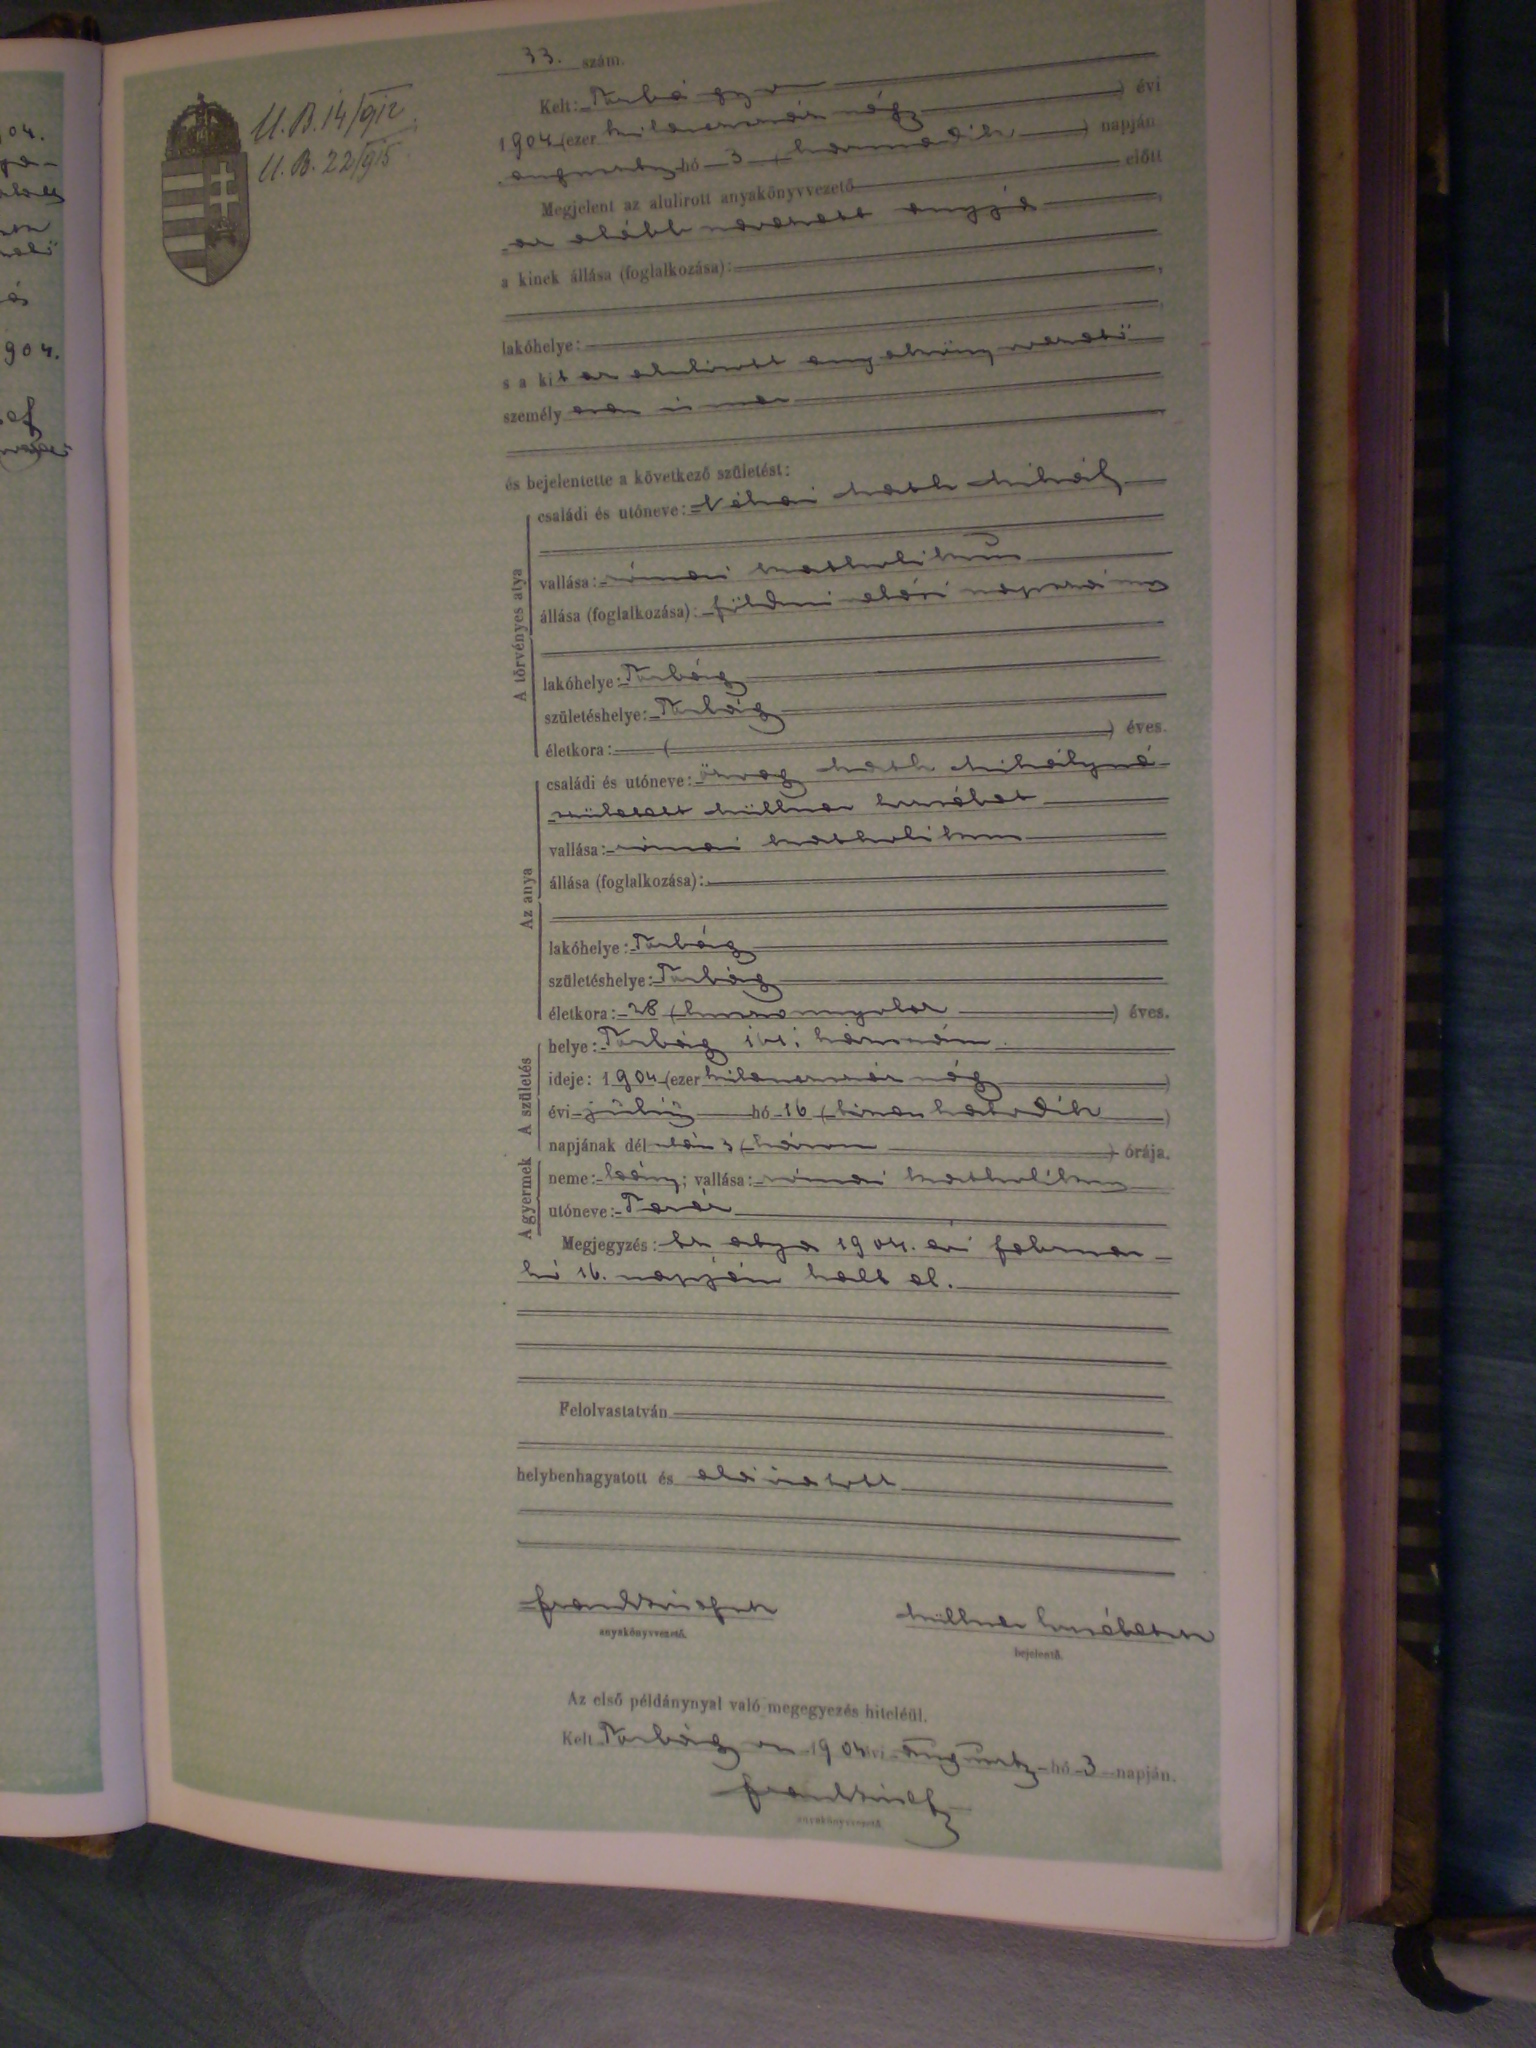 U. B. 14/912.
U. B. 22/915.
33. szám.
Kelt: Torbágyon évi
1904 (ezer kilencszáz négy
augusztus hó 3 (harmadik) napján
Megjelent az alulirott anyakönyvvezető előtt
az alább nevezett anyja,
a kinek állása (foglalkozása):
lakóhelye:
s a kit az alulirott anyakönyvvezető
személyesen ismer
és bejelentette a következő születést:
A törvényes atya
családi és utóneve: Néhai Mihály
vallása: római katholikus
állása (foglalkozása): földmivelési napszámos
lakóhelye: Torbágy
születéshelye: Torbágy
életkora: ( ) éves.
Az anya
családi és utóneve: özvegy Mihályné
született Müllner Erzsébet
vallása: római katholikus
állása (foglalkozása):
lakóhelye: Torbágy
születéshelye: Torbágy
életkora: 28 (huszonnyolc) éves.
A születés
helye: Torbágy házszám.
ideje: 1904 (ezer kilencszáz négy )
évi július hó 16 (tizenhatodik )
napjának délután 3 (három ) órája.
A gyermek
neme: leány; vallása: római katholikus
utóneve: Teréz
Megjegyzés: Az atya 1904. évi február
hó 16. napján halt el.
Felolvastatván
helybenhagyatott és aláiratott
anyakönyvvezető.
Müllner Erzsébet
bejelentő.
Az első példánynyal való megegyezés hiteléül.
Kelt Torbágyon 1904 évi augusztus hó 3 napján.
anyakönyvvezető.